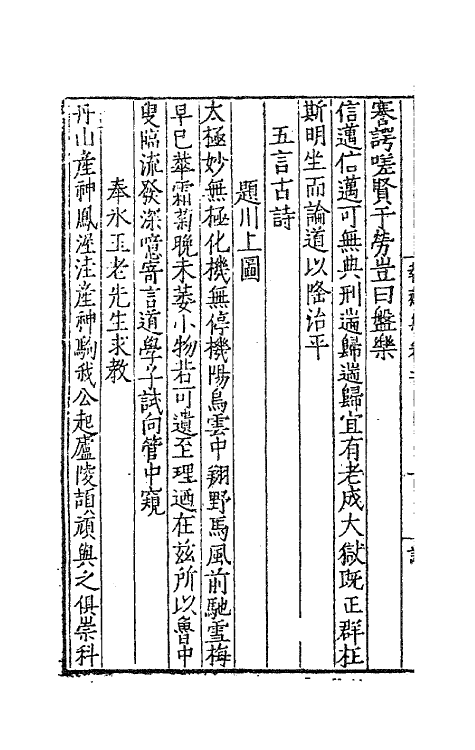 謇諤嗟賢于勞豈曰盤樂
信邁信邁可無典刑遄歸遄歸宜有老成大獄既正群枉
斯明坐而論道以隆治平
五言古詩
題川上圖
太極妙無極化機無停機陽烏雲中翔野馬風前馳雪梅
早已華霜菊晚未萎小物若可遺至理遁在兹所以魯中
叟臨流發深噫寄言道學子試向管中窺
奉氷玉老先生求教
丹山產神鳳渥洼產神駒我公起廬陵頡頏與之俱崇科